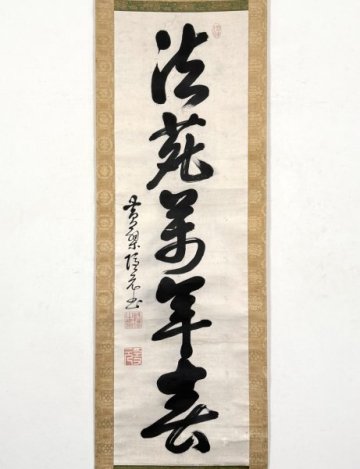 法苑萬年春
黄檗隱元書